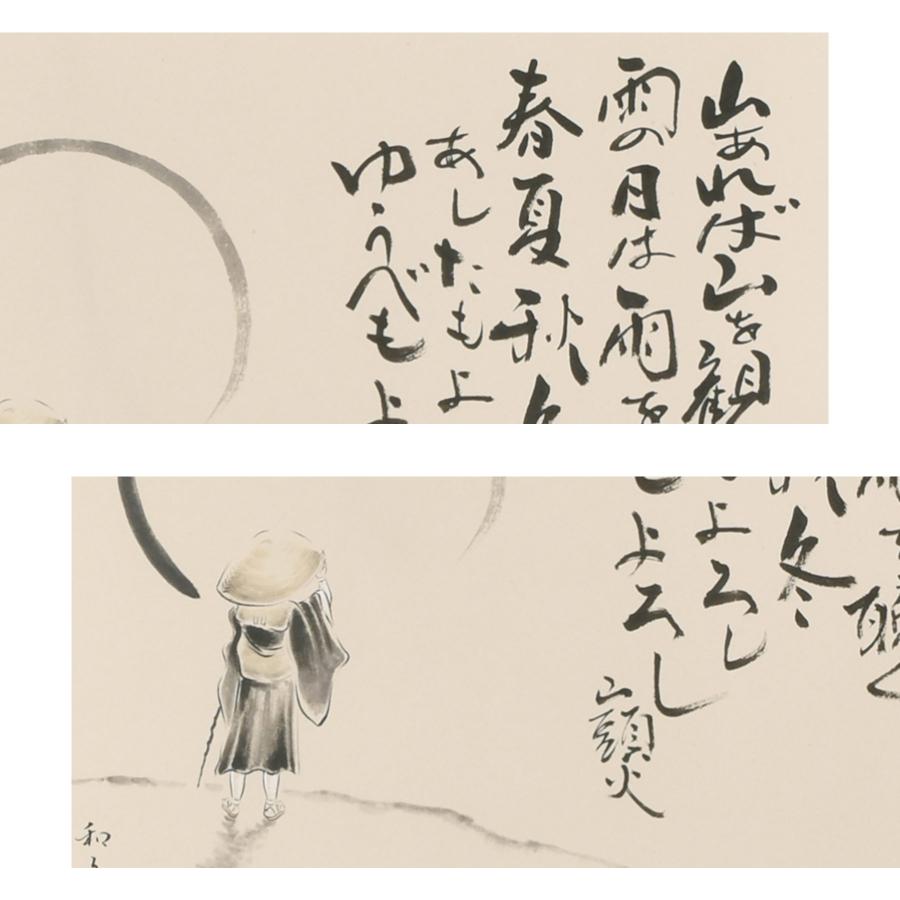 山あれば山を観
雨の日は雨を
春夏秋冬
あしたもよ
ゆうべもよ
聴
冬
よろし
よろし
山頭火
和